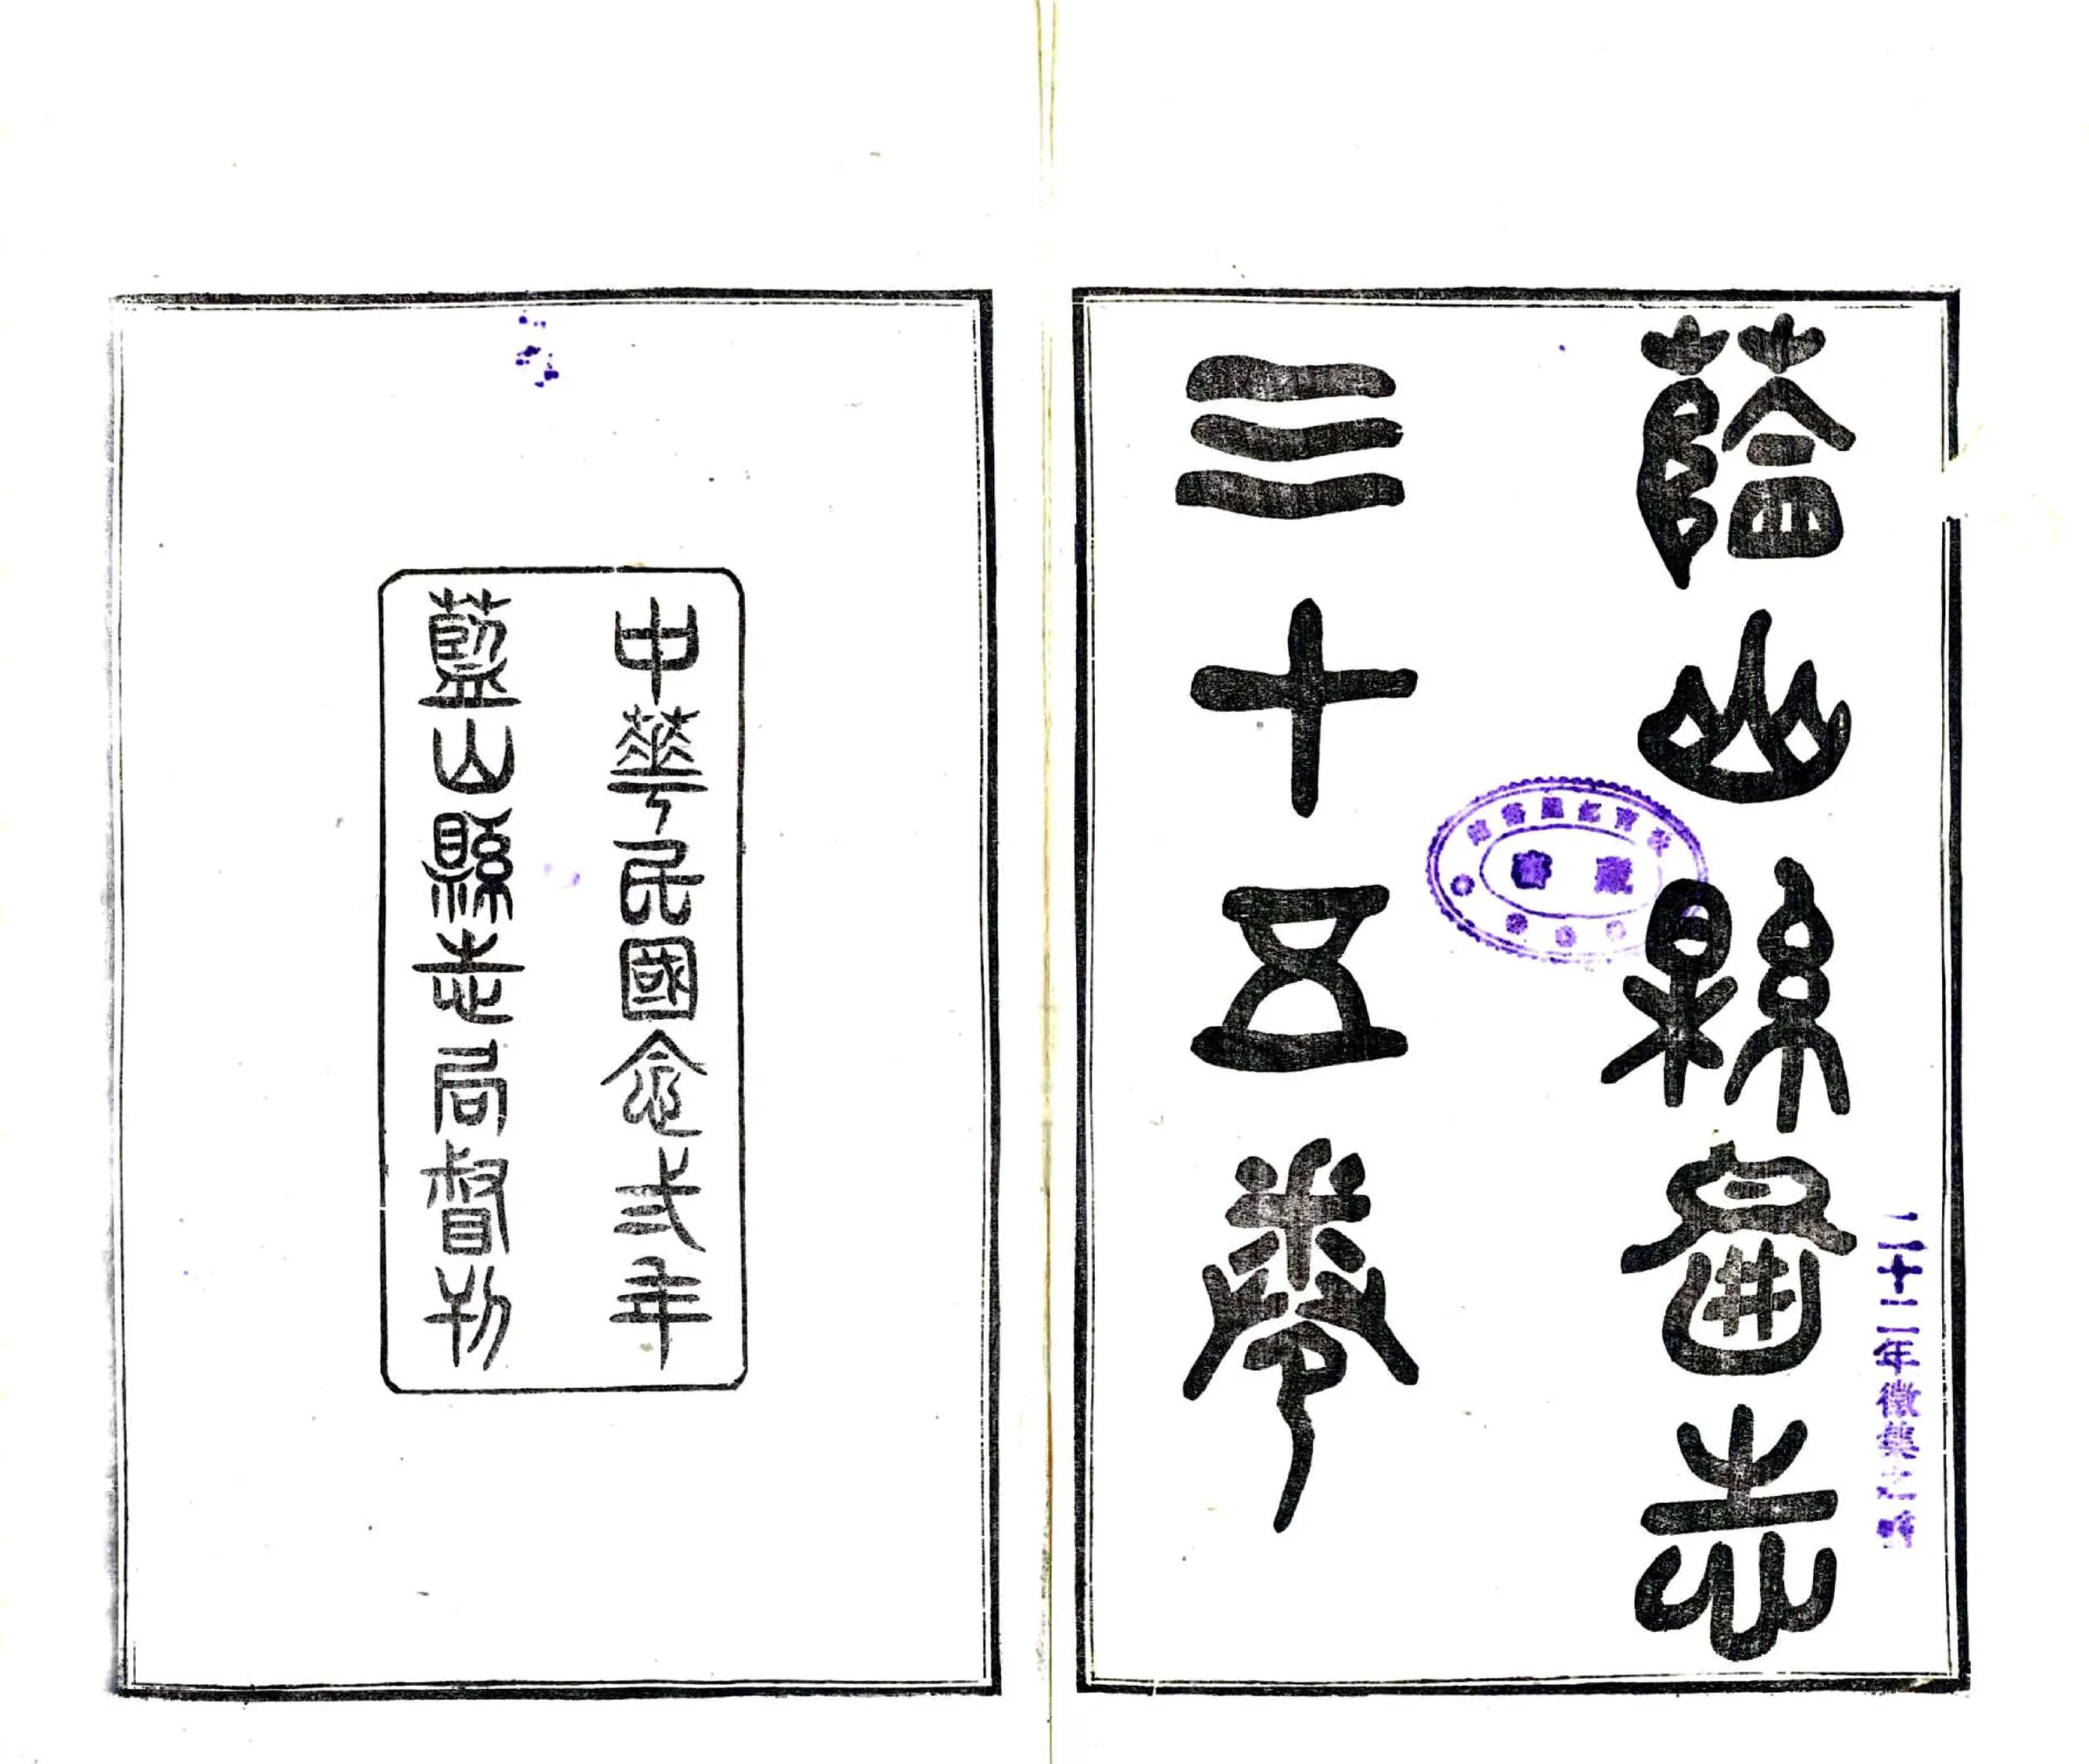 藍山縣圖志
三十五卷
二十二年徵集之書
藏書
中華民國念弍年
藍山縣志局督刊